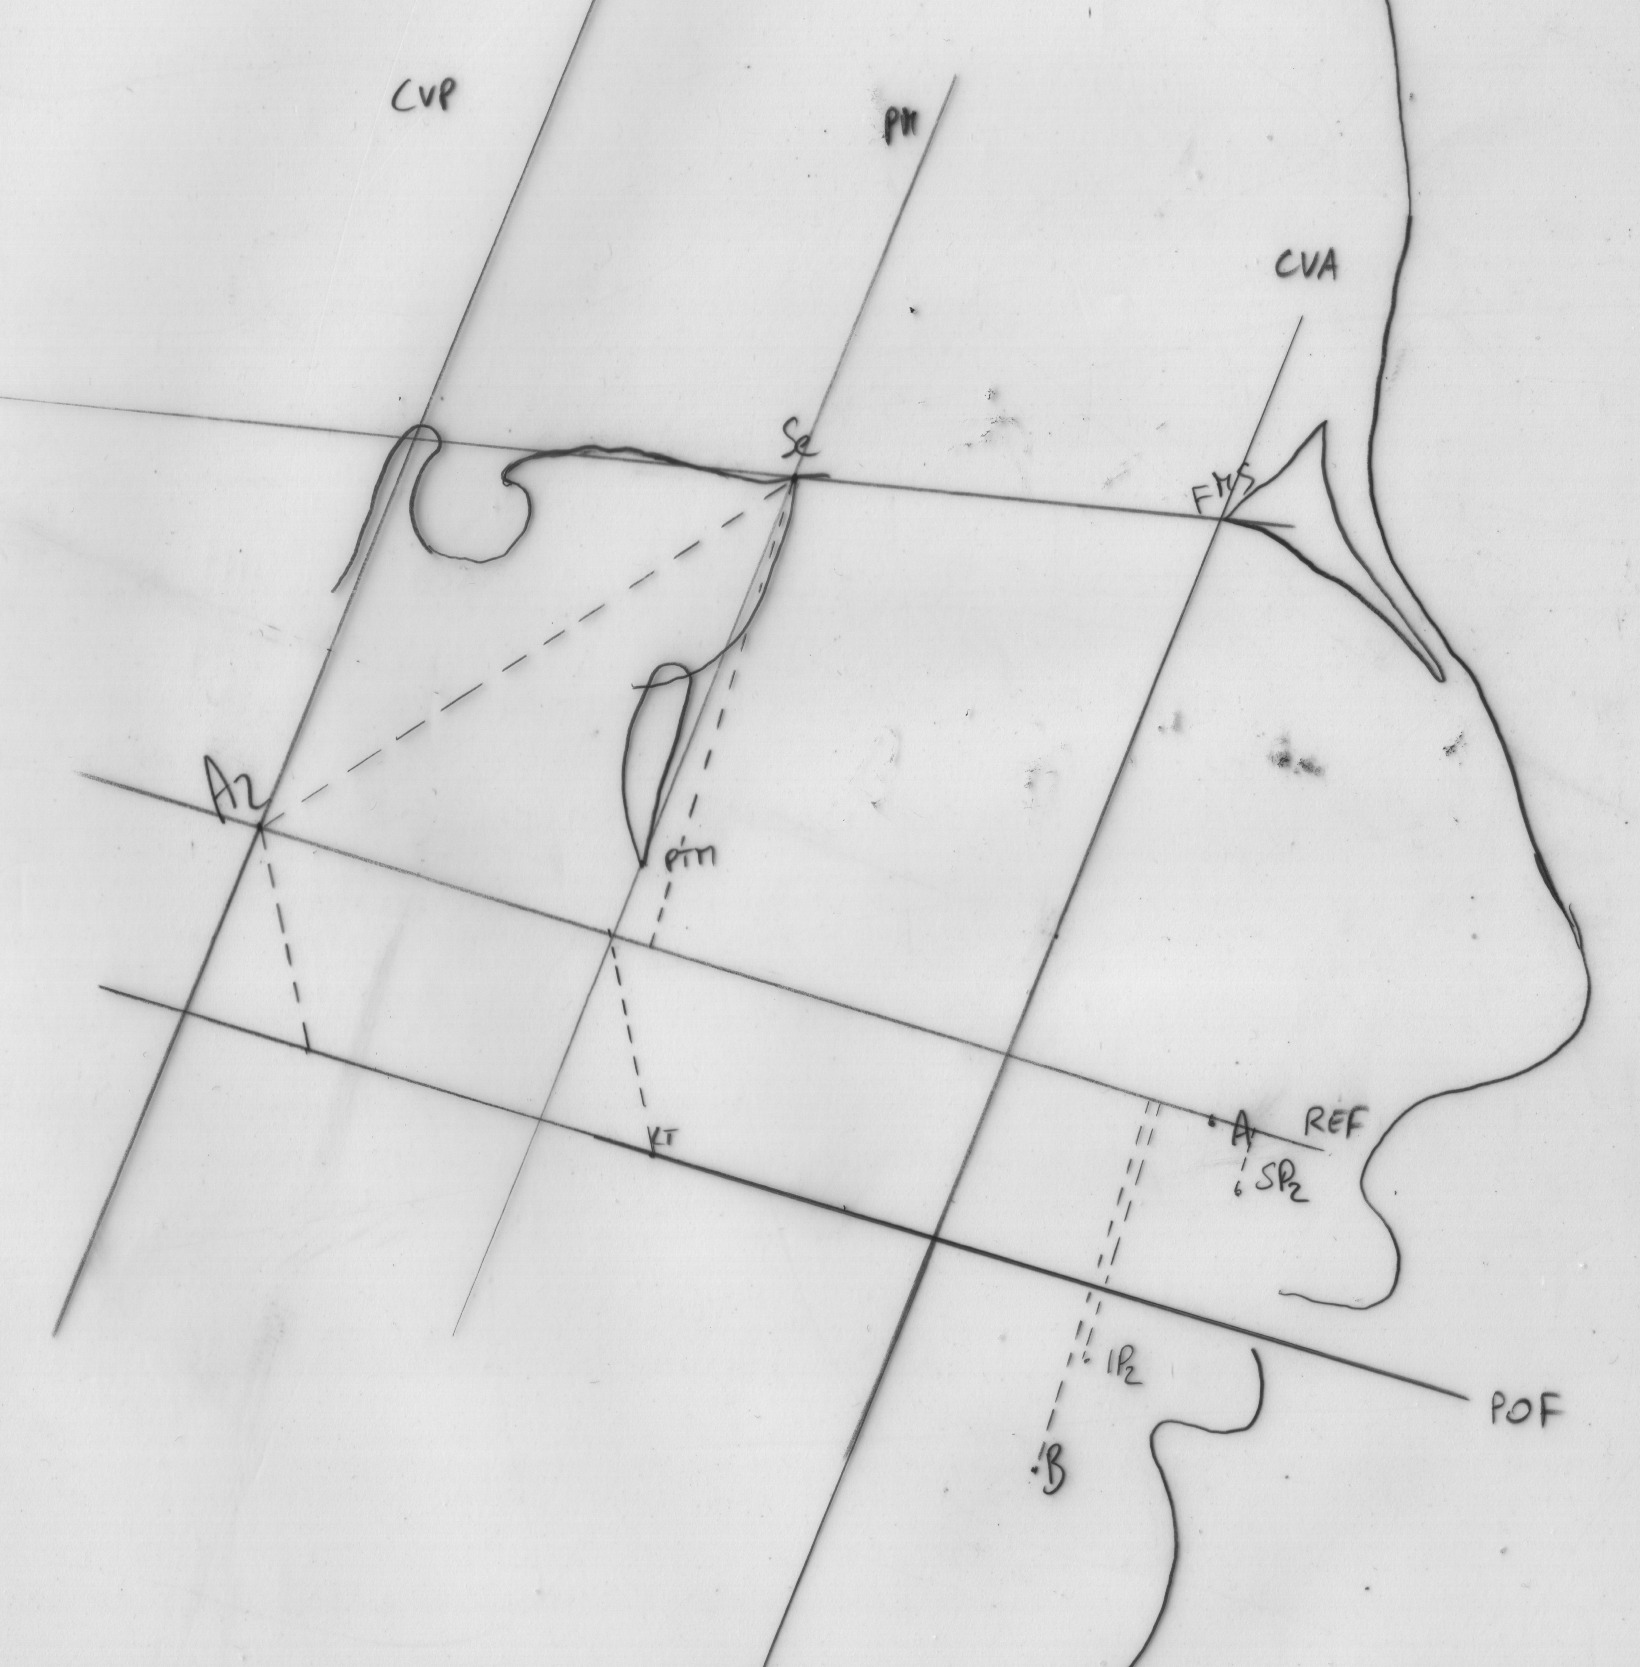 CVP
PM
CVA
Se
FMS
A2
PTM
KT
A
REF
SP2
IP2
POF
B